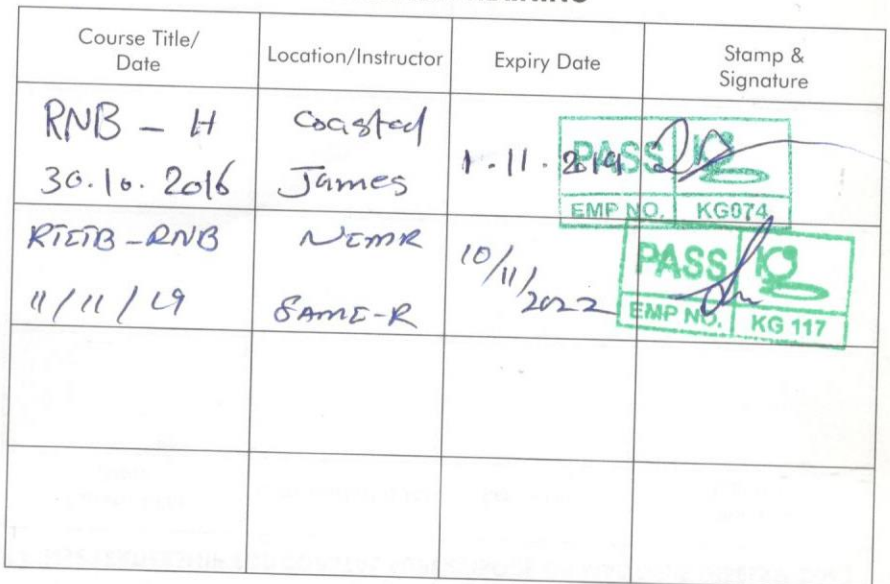 Course Title/
Date
Location/Instructor
Expiry Date
Stamp &
Signature
RNB - H
30.10.2016
Coastal
James
1.11.2019
PASS
EMP NO. KG074
RTITB-RNB
11/11/19
SAME-R
10/11/2022
PASS
EMP NO. KG 117